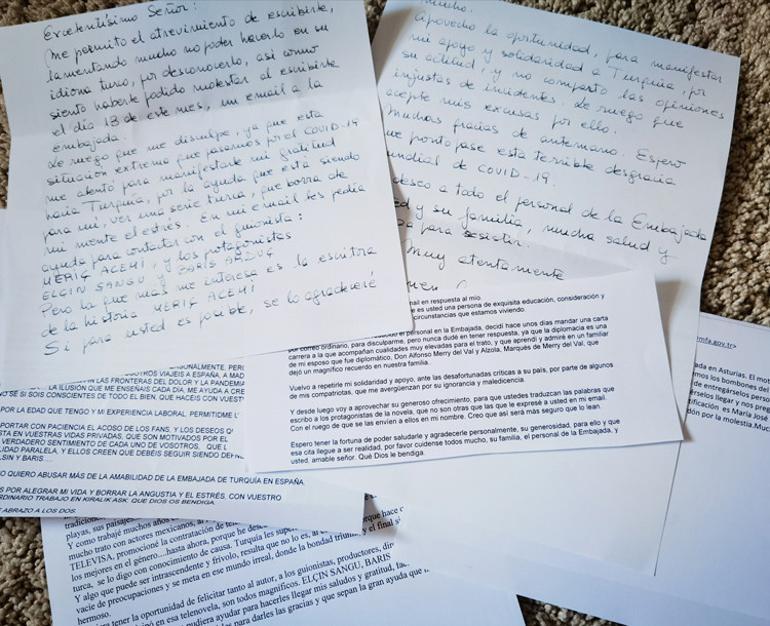 Excelentísimo Señor:
Me permito el atrevimiento de escribirle,
lamentando mucho no poder hacerlo en su
idioma turco, por desconocerlo, así como
siento haberle podido molestar al escribirle
el día 13 de este mes, un email a la
embajada.
Le ruego que me disculpe, ya que esta
situación extrema que pasamos por el COVID-19
me alentó para manifestarle mi gratitud
hacia Turquía, por la ayuda que está siendo
para mí, ver una serie turca, que borra de
mi mente el estrés. En mi email les pedía
ayuda para contactar con el guionista:
MERIÇ ACEMI, y los protagonistas
ELÇIN SANGU y BARIS ARDUÇ
Pero la que más me interesa es la escritora
de la historia MERIÇ ACEMI
Si para usted es posible, se lo agradeceré
mucho.
Aprovecho la oportunidad, para manifestar
mi apoyo y solidaridad a Turquía, por
su actitud, y no comparto las opiniones
injustas de incidentes. Le ruego que
acepte mis excusas por ello.
Muchas gracias de antemano. Espero
que pronto pase esta terrible desgracia
mundial de COVID-19.
deseo a todo el personal de la Embajada
y su familia, mucha salud y
para resistir.
Muy atentamente
mail en respuesta al mio.
e es usted una persona de exquisita educación, consideración y
circunstancias que estamos viviendo.
personal en la Embajada, decidí hace unos días mandar una carta
por correo ordinario, para disculparme, pero nunca dudé en tener respuesta, ya que la diplomacia es una
carrera a la que acompañan cualidades muy elevadas para el trato, y que aprendí a admirar en un familiar
de mi esposo que fue diplomático. Don Alfonso Merry del Val y Alzola, Marqués de Merry del Val, que
dejó un magnífico recuerdo en nuestra familia.
Vuelvo a repetirle mi solidaridad y apoyo, ante las desafortunadas críticas a su país, por parte de algunos
de mis compatriotas, que me avergüenzan por su ignorancia y maledicencia.
Y desde luego voy a aprovechar su generoso ofrecimiento, para que ustedes traduzcan las palabras que
escribo a los protagonistas de la novela, que no son otras que las que le expresé a usted en mi email.
Con el ruego de que se las envíen a ellos en mi nombre. Creo que así será más seguro que lo lean.
Espero tener la fortuna de poder saludarle y agradecerle personalmente, su generosidad, para ello y que
esa cita llegue a ser realidad, por favor cuídense todos mucho, su familia, el personal de la Embajada, y
usted, amable señor. Qué Dios le bendiga.
mfa.gov.tr>
ada en Asturias. El mot
mos los bombones del
de entregárselos person
rselos llegar y nos preg
tificación es María José
dón por la molestia.Muc
ONALMENTE, PERO
OTROS VIAJEIS A ESPAÑA, A MAD
AN LAS FRONTERAS DEL DOLOR Y LA PANDEMIA
LA ILUSIÓN QUE ME ENSEÑAIS CADA DÍA, ME AYUDA A CRE
NO SE SI SOIS CONSCIENTES DE TODO EL BIEN, QUE HACÉIS CON VUEST
POR LA EDAD QUE TENGO Y MI EXPERIENCIA LABORAL, PERMITIDME
PORTAR CON PACIENCIA EL ACOSO DE LOS FANS, Y LOS DESEOS
STA EN VUESTRAS VIDAS PRIVADAS, QUE SON MOTIVADOS POR EL
VERDADERO SENTIMIENTO DE CADA UNO DE VOSOTROS,
LIDAD PARALELA, Y ELLOS CREEN QUE DEBÉIS SEGUIR SIENDO
LSIN Y BARIS....
O QUIERO ABUSAR MÁS DE LA AMABILIDAD DE LA EMBAJADA DE TURQUÍA EN ESPAÑA
S POR ALEGRAR MI VIDA Y BORRAR LA ANGUSTIA Y EL ESTRÉS, CON VUESTRO
ORDINARIO TRABAJO EN KIRALIK ASK. QUE DIOS OS BENDIGA.
ABRAZO A LOS DOS.
playas, sus paisajes
Y como trabajé muchos años
mucho trato con actores mexicanos, al
TELEVISA, promocioné la contratación de
los mejores en el género....hasta ahora, porque he
turca, se lo digo con conocimiento de causa. Turquía les
Y algo que puede ser intrascendente y frívolo, resulta que no lo es, al
vacie de preocupaciones y se meta en ese mundo irreal, donde la bondad y el final
hermoso.
tener la oportunidad de felicitar tanto al autor, a los guionistas, productores,
en esa telenovela, son todos magníficos. ELÇIN SANGU, BARIS
pudiera ayudar para hacerles llegar mis saludos y gratitud,
para darles las gracias y que sepan la gran ayuda que